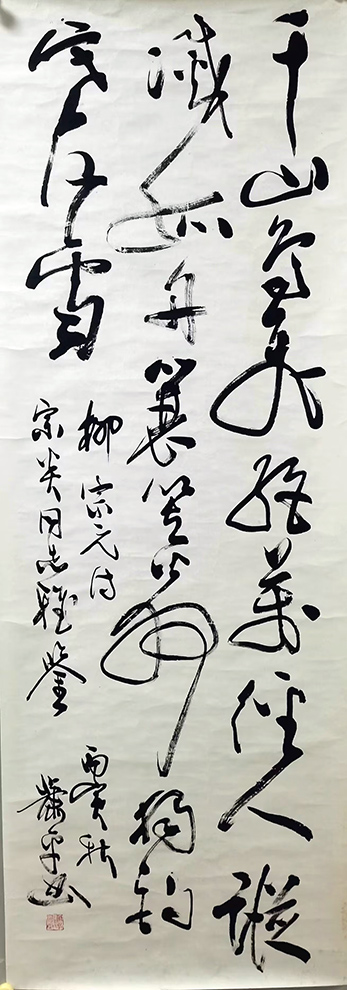 千山鳥飛絶萬徑人蹤
滅孤舟蓑笠翁獨釣
寒江雪
柳宗元诗
同志雅鑒
丙寅秋
蕭平书